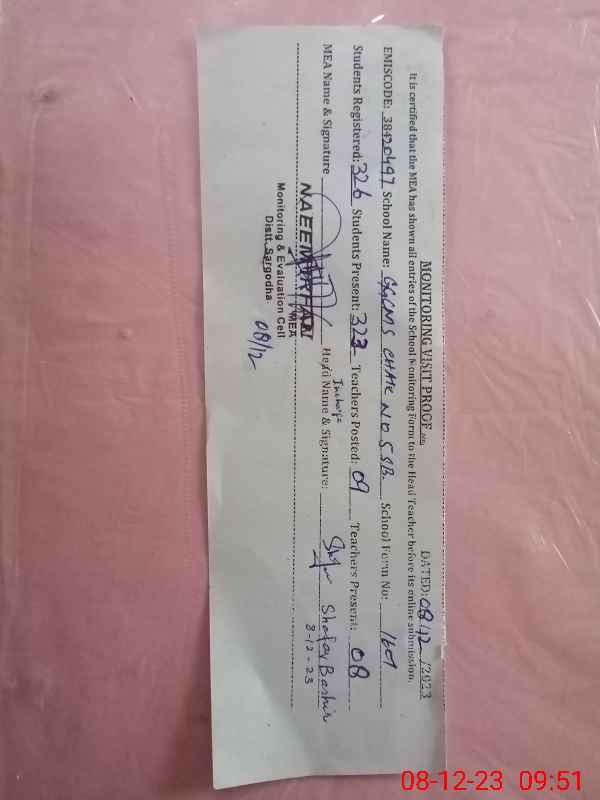 MONITORING VISIT PROOF DATED: 08/12/2023
It is certified that the MEA has shown all entries of the School Monitoring Form to the Head Teacher before its online submission.
EMISCODE: 38420497 School Name: GGCMS CHAK NO 5 SB School Form No:
Students Registered: 326 Students Present: 323 Teachers Posted: 09 Teachers Present: 08
Incharge
MEA Name & Signature Head Name & Signature: Bashir
8-12-23
NAEEM IRFAN
MEA
Monitoring & Evaluation Cell
Distt. Sargodha
08/12
08-12-23 09:51